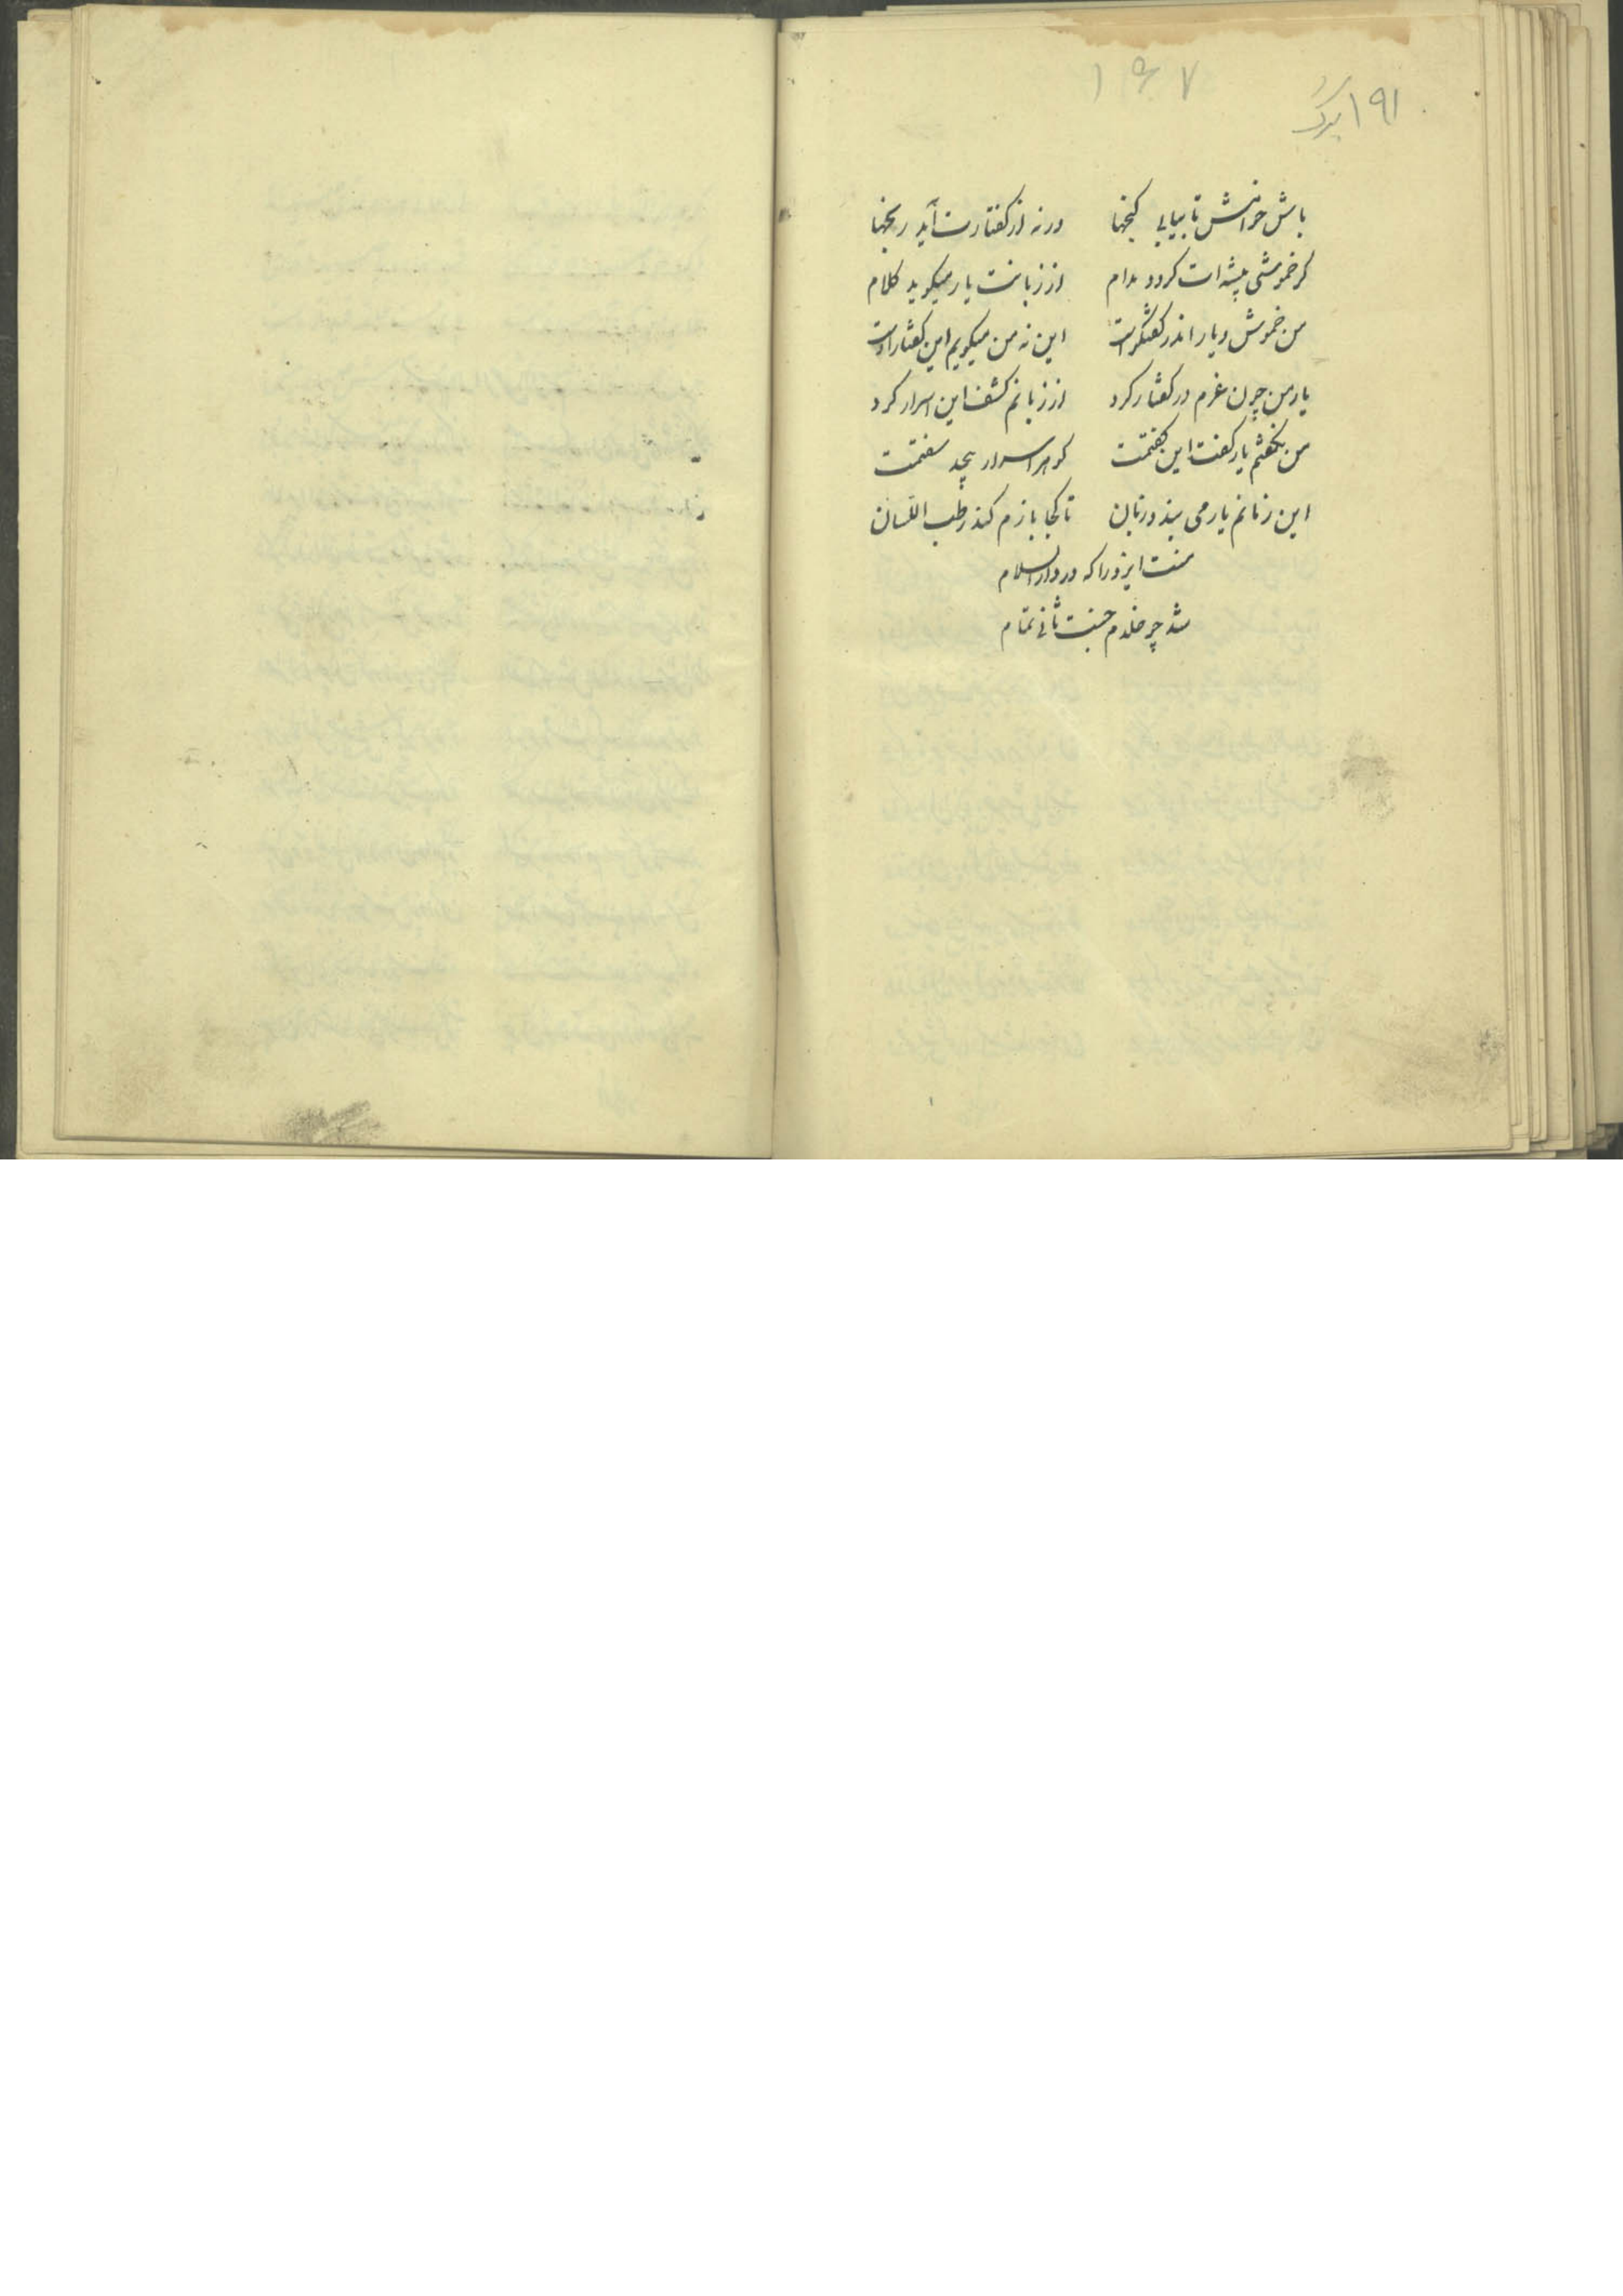 ۱۶۷
۱۹۱ برگ
باش خوامش تا بیابی کنجها ورنه از کفتارت آید رنجها
کر خموشی پیشه ات کردد مدام از زبانت یار میکوید کلام
من خموش و یار اندر کفتکو است این نه من میکویم این کفتار اوست
یار من چون عزم در کفتار کرد از زبانم کشف این اسرار کرد
من نکفتم یار کفت این کفتمت کوهر اسرار بیحد سفتمت
این زمانم یار می بندد زبان تا کجا بازم کند رطب اللسان
منت ایزد را که در دار السلام
شد چو خلدم جنت ثانی تمام